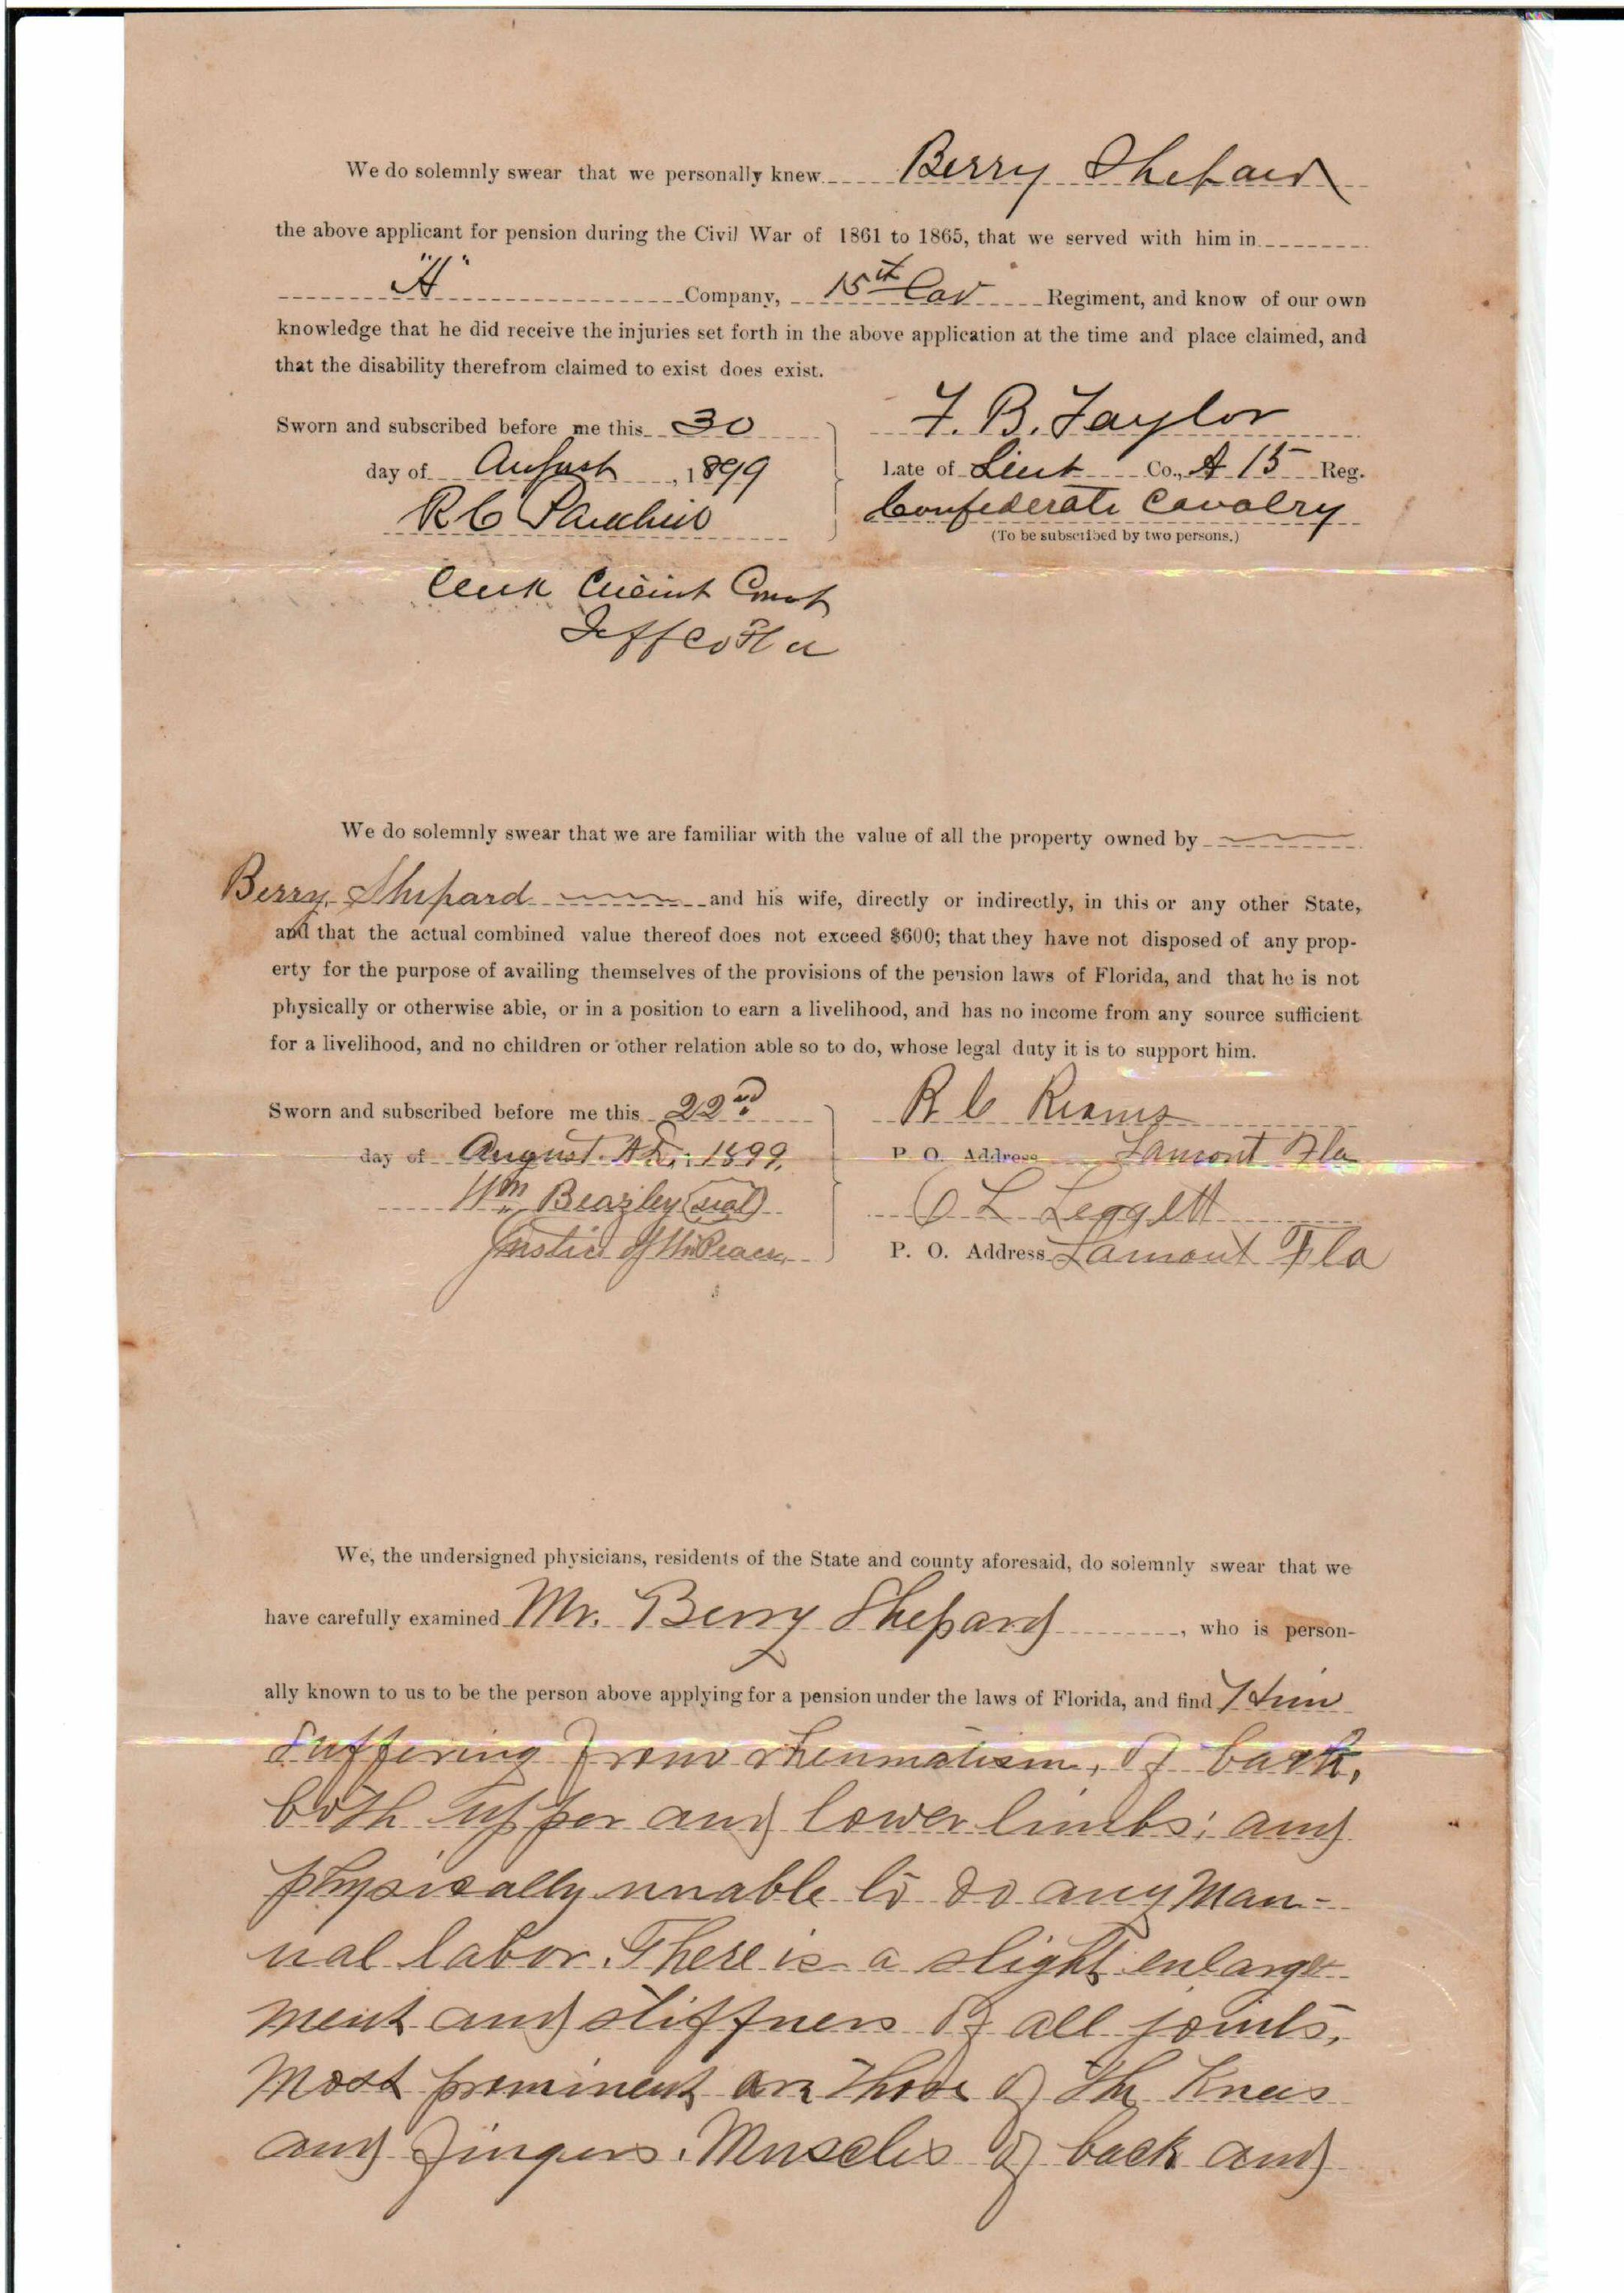 We do solemnly swear that we personally knew Berry Shepard
the above applicant for pension during the Civil War of 1861 to 1865, that we served with him in
"A" Company, 15th Cav Regiment, and know of our own
knowledge that he did receive the injuries set forth in the above application at the time and place claimed, and
that the disability therefrom claimed to exist does exist.
Sworn and subscribed before me this 30
day of August, 1899
R C
Clerk Circuit Court
Jeff Co Fla
F. B. Taylor
Late of Lieut Co., A 15 Reg.
Confederate Cavalry
(To be subscribed by two persons.)
We do solemnly swear that we are familiar with the value of all the property owned by
Berry Shepard and his wife, directly or indirectly, in this or any other State,
and that the actual combined value thereof does not exceed $600; that they have not disposed of any prop-
erty for the purpose of availing themselves of the provisions of the pension laws of Florida, and that he is not
physically or otherwise able, or in a position to earn a livelihood, and has no income from any source sufficient
for a livelihood, and no children or other relation able so to do, whose legal duty it is to support him.
Sworn and subscribed before me this 22nd
day of August A.D. 1899.
Wm Beazley (seal)
Justice of the Peace
R C Reams
P. O. Address Lamont Fla
O L Leggett
P. O. Address Lamont Fla
We, the undersigned physicians, residents of the State and county aforesaid, do solemnly swear that we
have carefully examined Mr. Berry Shepard, who is person-
ally known to us to be the person above applying for a pension under the laws of Florida, and find Him
suffering from rheumatism, of back,
both upper and lower limbs; and
physically unable to do any man-
ual labor. There is a slight enlarge-
ment and stiffness of all joints,
most prominent are those of the knees
and fingers. Muscles of back and